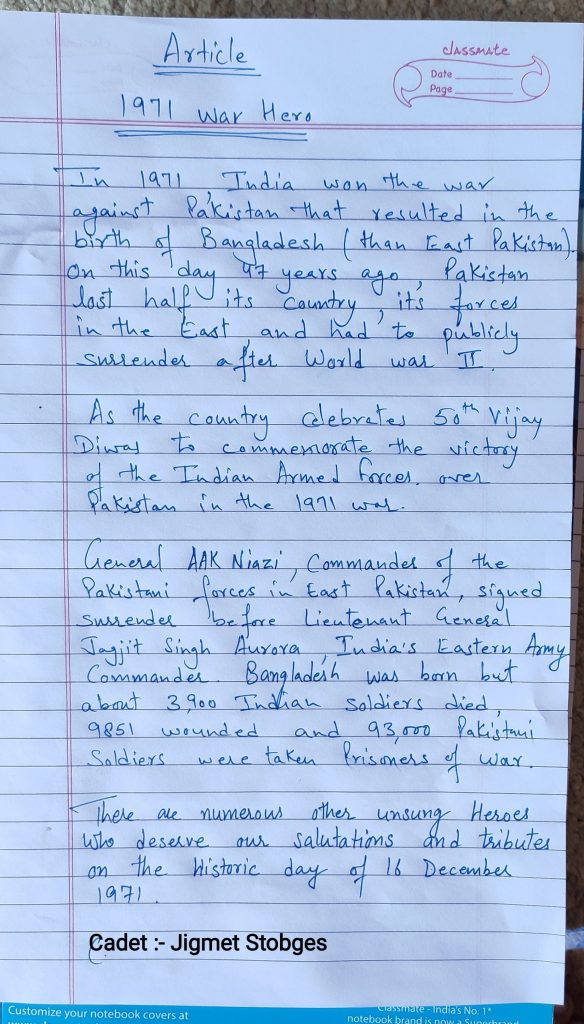 Article
classmate
Date
Page
1971 War Hero
In 1971, India won the war
against Pakistan that resulted in the
birth of Bangladesh (than East Pakistan).
On this day 47 years ago, Pakistan
lost half its country, it's forces
in the East and had to publicly
surrender after World war II.
As the country celebrates 50th Vijay
Diwas to commemorate the victory
of the Indian Armed forces. over
Pakistan in the 1971 war.
General AAK Niazi, Commander of the
Pakistani forces in East Pakistan, signed
surrender before Lieutenant General
Jagjit Singh Aurora, India's Eastern Army
Commander. Bangladesh was born but
about 3,900 Indian Soldiers died,
9851 wounded and 93,000 Pakistani
Soldiers were taken Prisoners of War.
There are numerous other unsung Heroes
Who deserve our salutations and tributes
on the historic day of 16 December
1971.
Cadet :- Jigmet Stobges
Customize your notebook covers at
Classmate - India's No. 1*
notebook brand is now a Superbrand